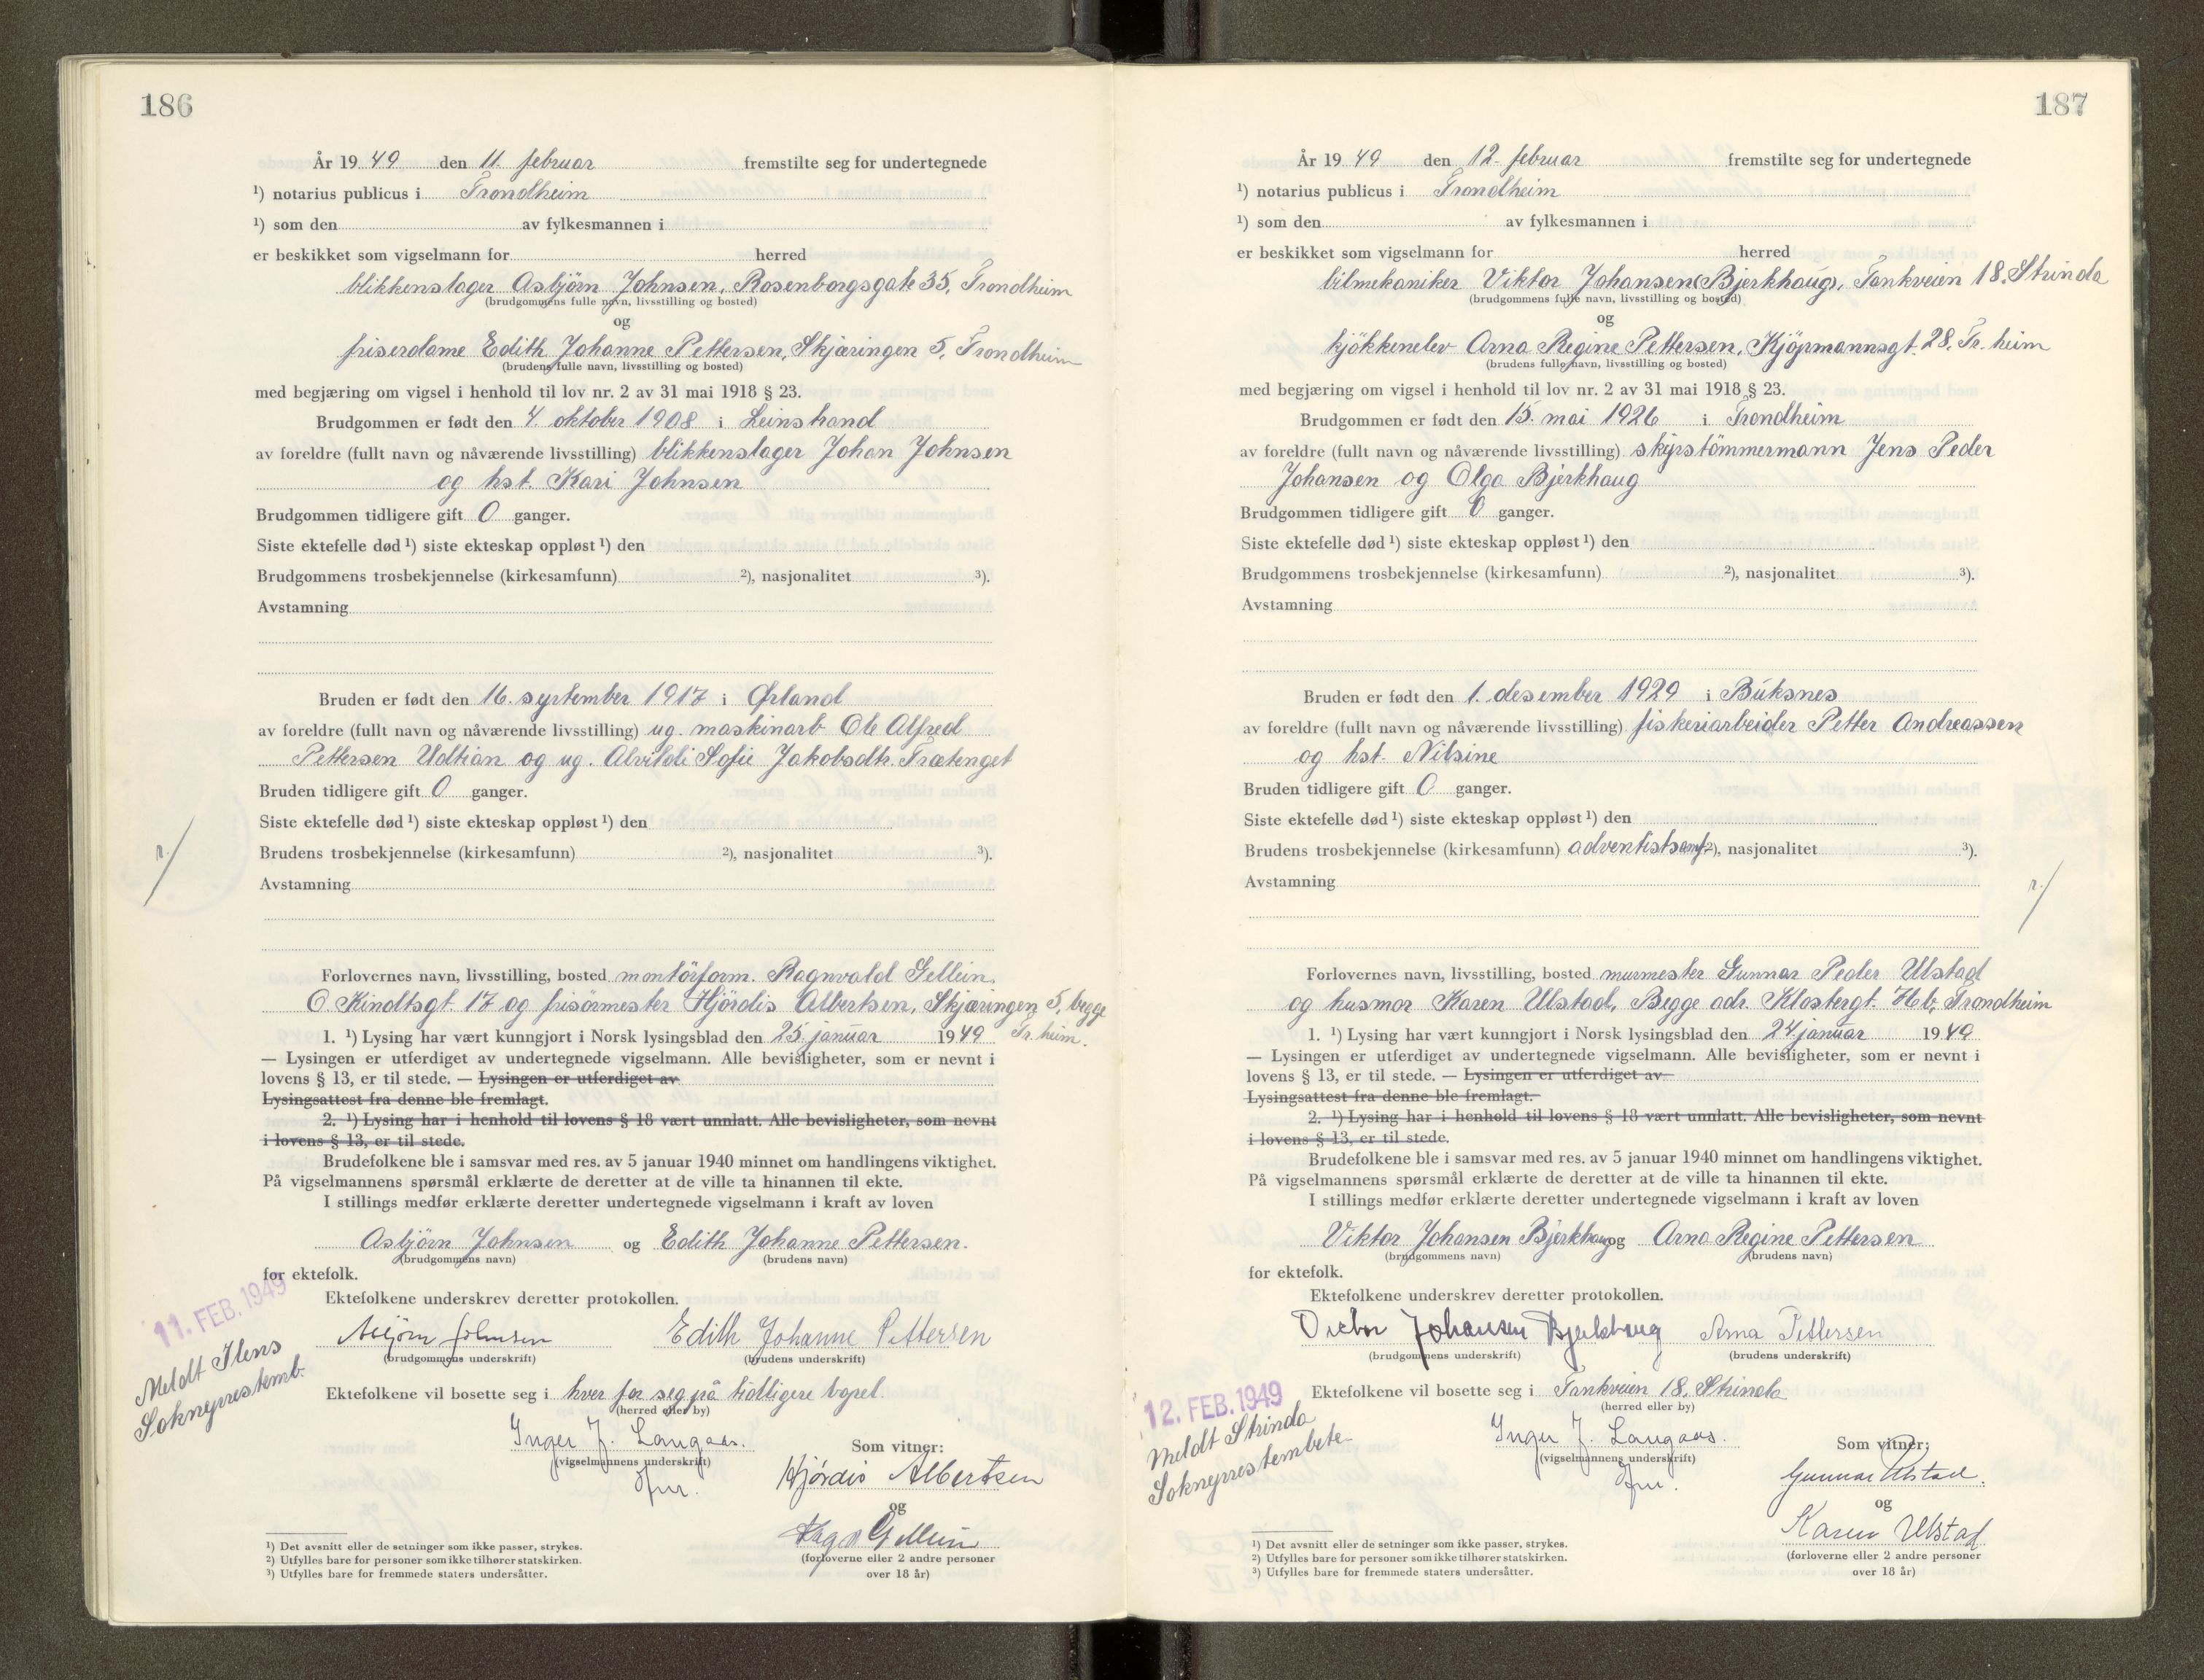 186
År 19 49 den 11. februar fremstilte seg for undertegnede
¹) notarius publicus i Trondheim
¹) som den av fylkesmannen i
er beskikket som vigselmann for herred
blikkenslager Asbjörn Johnsen, Rosenborgsgate 35, Trondheim
(brudgommens fulle navn, livsstilling og bosted)
og
friserdame Edith Johanne Pettersen, Skjæringen 5, Trondheim
(brudens fulle navn, livsstilling og bosted)
med begjæring om vigsel i henhold til lov nr. 2 av 31 mai 1918 § 23.
Brudgommen er født den 4. oktober 1908 i Leinstrand
av foreldre (fullt navn og nåværende livsstilling) blikkenslager Johan Johnsen
og hst. Kari Johnsen
Brudgommen tidligere gift 0 ganger.
Siste ektefelle død ¹) siste ekteskap oppløst ¹) den
Brudgommens trosbekjennelse (kirkesamfunn) ²), nasjonalitet ³).
Avstamning
Bruden er født den 16. september 1917 i Ørland
av foreldre (fullt navn og nåværende livsstilling) ug. maskinarb. Ole Alfred
Pettersen Udtian og ug. Alvildi Sofie Jakobsdtr. Trætenget
Bruden tidligere gift 0 ganger.
Siste ektefelle død ¹) siste ekteskap oppløst ¹) den
Brudens trosbekjennelse (kirkesamfunn) ²), nasjonalitet ³).
Avstamning
Forlovernes navn, livsstilling, bosted montörform. Ragnvald Gellein,
O. Kindtsgt. 17 og frisörmester Hjördis Albertsen, Skjæringen 5, begge
Tr.heim.
1. ¹) Lysing har vært kunngjort i Norsk lysingsblad den 25. januar 19 49
— Lysingen er utferdiget av undertegnede vigselmann. Alle bevisligheter, som er nevnt i
lovens § 13, er til stede. — Lysingen er utferdiget av
Lysingsattest fra denne ble fremlagt.
2. ¹) Lysing har i henhold til lovens § 18 vært unnlatt. Alle bevisligheter, som nevnt
i lovens § 13, er til stede.
Brudefolkene ble i samsvar med res. av 5 januar 1940 minnet om handlingens viktighet.
På vigselmannens spørsmål erklærte de deretter at de ville ta hinannen til ekte.
I stillings medfør erklærte deretter undertegnede vigselmann i kraft av loven
Asbjörn Johnsen og Edith Johanne Pettersen.
(brudgommens navn) (brudens navn)
for ektefolk.
Ektefolkene underskrev deretter protokollen.
11. FEB. 1949
Meldt Ilens
Sokneprestemb.
Asbjörn Johnsen Edith Johanne Pettersen
(brudgommens underskrift) (brudens underskrift)
Ektefolkene vil bosette seg i hver for seg på tidligere bopel.
(herred eller by)
Inger J. Langaas.
(vigselmannens underskrift)
Som vitner:
Hjördis Albertsen
og
Ragn Gellein
(forloverne eller 2 andre personer
over 18 år)
¹) Det avsnitt eller de setninger som ikke passer, strykes.
²) Utfylles bare for personer som ikke tilhører statskirken.
³) Utfylles bare for fremmede staters undersåtter.
187
År 19 49 den 12. februar fremstilte seg for undertegnede
¹) notarius publicus i Trondheim
¹) som den av fylkesmannen i
er beskikket som vigselmann for herred
bilmekaniker Viktor Johansen (Bjerkhaug), Tankveien 18. Strinda
(brudgommens fulle navn, livsstilling og bosted)
og
kjökkenelev Arna Regine Pettersen, Kjöpmannsgt. 28. Tr.heim
(brudens fulle navn, livsstilling og bosted)
med begjæring om vigsel i henhold til lov nr. 2 av 31 mai 1918 § 23.
Brudgommen er født den 15. mai 1926 i Trondheim
av foreldre (fullt navn og nåværende livsstilling) skipstömmermann Jens Peder
Johansen og Olga Bjerkhaug
Brudgommen tidligere gift 0 ganger.
Siste ektefelle død ¹) siste ekteskap oppløst ¹) den
Brudgommens trosbekjennelse (kirkesamfunn) ²), nasjonalitet ³).
Avstamning
Bruden er født den 1. desember 1929 i Buksnes
av foreldre (fullt navn og nåværende livsstilling) fiskeriarbeider Petter Andreassen
og hst. Nilsine
Bruden tidligere gift 0 ganger.
Siste ektefelle død ¹) siste ekteskap oppløst ¹) den
Brudens trosbekjennelse (kirkesamfunn) adventistsamf. ²), nasjonalitet ³).
Avstamning
Forlovernes navn, livsstilling, bosted murmester Gunnar Peder Ulstad
og husmor Karen Ulstad, Begge adr. Klostergt. 46b, Trondheim
1. ¹) Lysing har vært kunngjort i Norsk lysingsblad den 24. januar 19 49
— Lysingen er utferdiget av undertegnede vigselmann. Alle bevisligheter, som er nevnt i
lovens § 13, er til stede. — Lysingen er utferdiget av
Lysingsattest fra denne ble fremlagt.
2. ¹) Lysing har i henhold til lovens § 18 vært unnlatt. Alle bevisligheter, som nevnt
i lovens § 13, er til stede.
Brudefolkene ble i samsvar med res. av 5 januar 1940 minnet om handlingens viktighet.
På vigselmannens spørsmål erklærte de deretter at de ville ta hinannen til ekte.
I stillings medfør erklærte deretter undertegnede vigselmann i kraft av loven
Viktor Johansen Bjerkhaug og Arna Regine Pettersen
(brudgommens navn) (brudens navn)
for ektefolk.
Ektefolkene underskrev deretter protokollen.
Victor Johansen Bjerkhaug Arna Pettersen
(brudgommens underskrift) (brudens underskrift)
12. FEB. 1949
Meldt Strinda
Sokneprestembete
Ektefolkene vil bosette seg i Tankveien 18. Strinda
(herred eller by)
Inger J. Langaas.
(vigselmannens underskrift)
Som vitner:
Gunnar Ulstad.
og
Karen Ulstad
(forloverne eller 2 andre personer
over 18 år)
¹) Det avsnitt eller de setninger som ikke passer, strykes.
²) Utfylles bare for personer som ikke tilhører statskirken.
³) Utfylles bare for fremmede staters undersåtter.